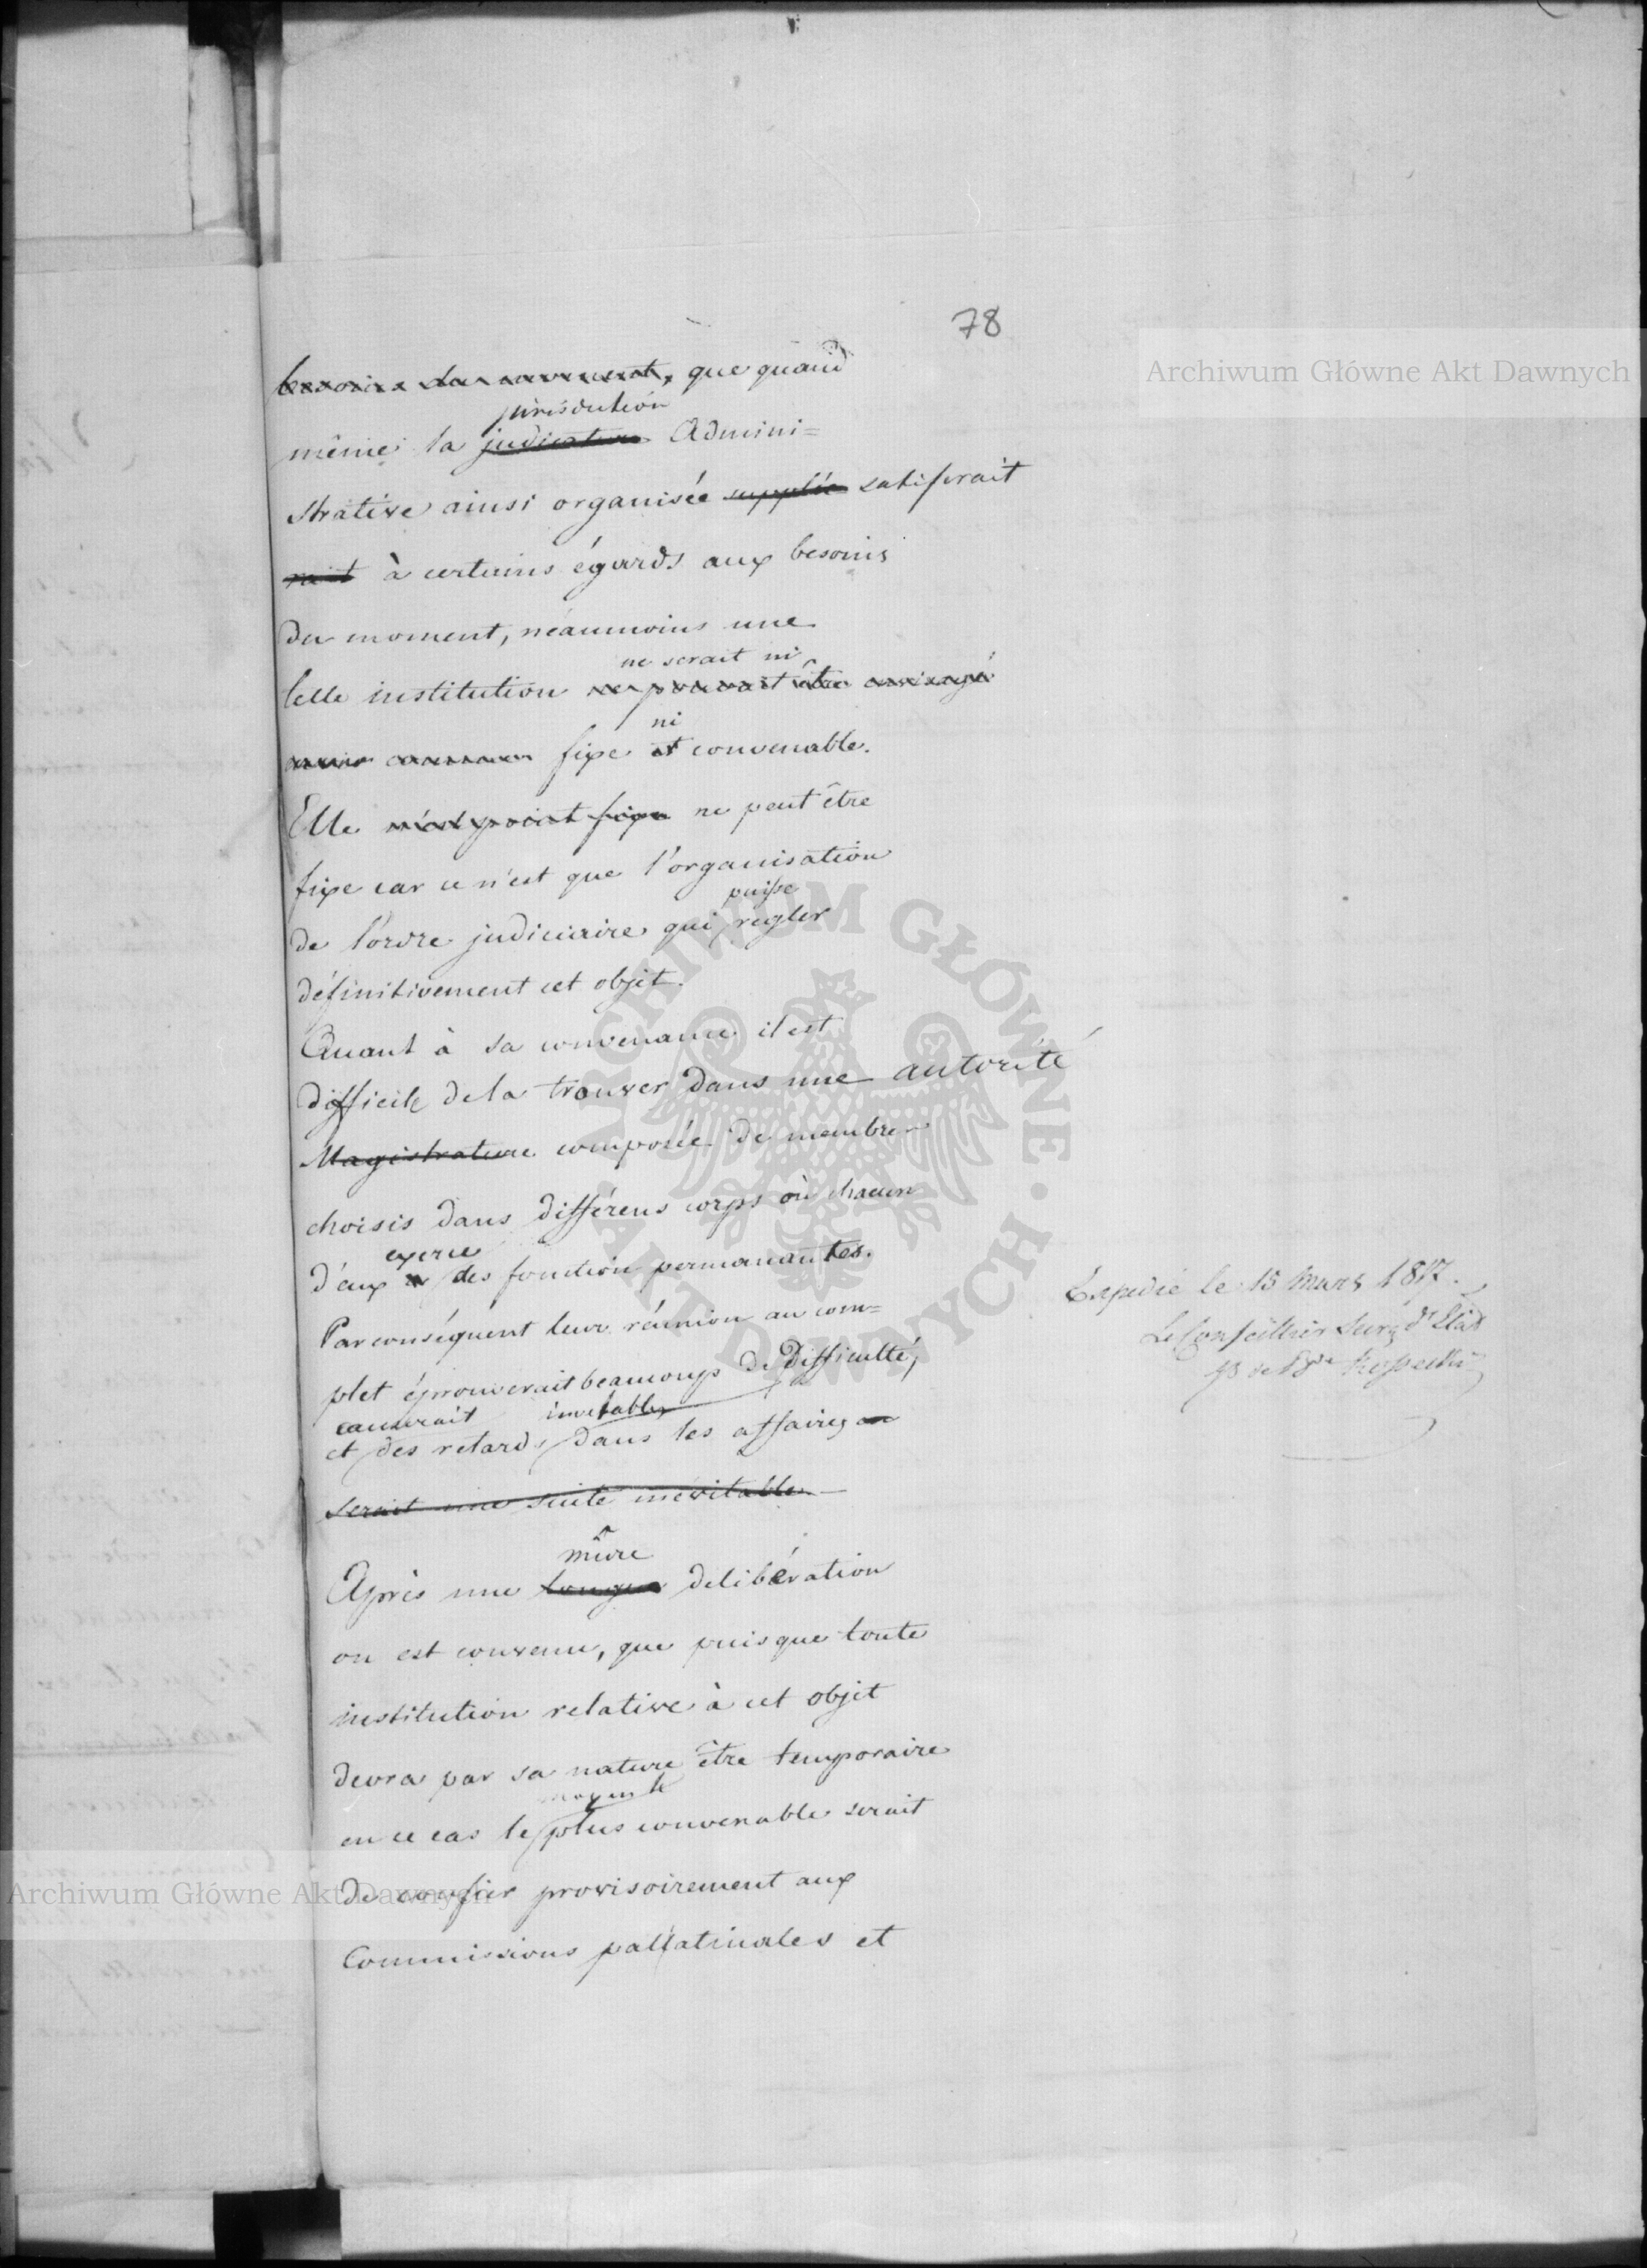 78
besoins du moment, que quand
jurisdiction
même la judicature Admini=
strative ainsi organisée supplée satiferait
rait à certains égards aux besoins
du moment, néanmoins une
ne serait ni
telle institution ne pouvait être envisagé
ni
fixe et convenable.
Elle n'est point fixe ne peut être
fixe car ce n'est que l'organisation
puisse
de l'ordre judiciaire qui régler
définitivement cet objet.
Quant à sa convenance il est
difficile de la trouver dans une autorité
Magistrature composée de membres
choisis dans différens corps où chacun
exerce
d'eux a des fonction permanantes.
Par conséquent leur réunion au com=
plet éprouverait beaucoup de Difficulté,
causerait inevitables
et des retards dans les affaires en
serait une suite inévitable
mûre
Après une longue délibération
on est convenu, que puisque toute
institution relative à cet objet
devra par sa nature être temporaire
moyen le
en ce cas le plus convenable serait
de confier provisoirement aux
Commissions pallatinales et
Expedié le 15 Mars 1817.
Le Conseiller Secr d'Etat
Archiwum Główne Akt Dawnych
Archiwum Główne Akt Dawnych
ARCHIWUM GŁÓWNE · AKT DAWNYCH ·